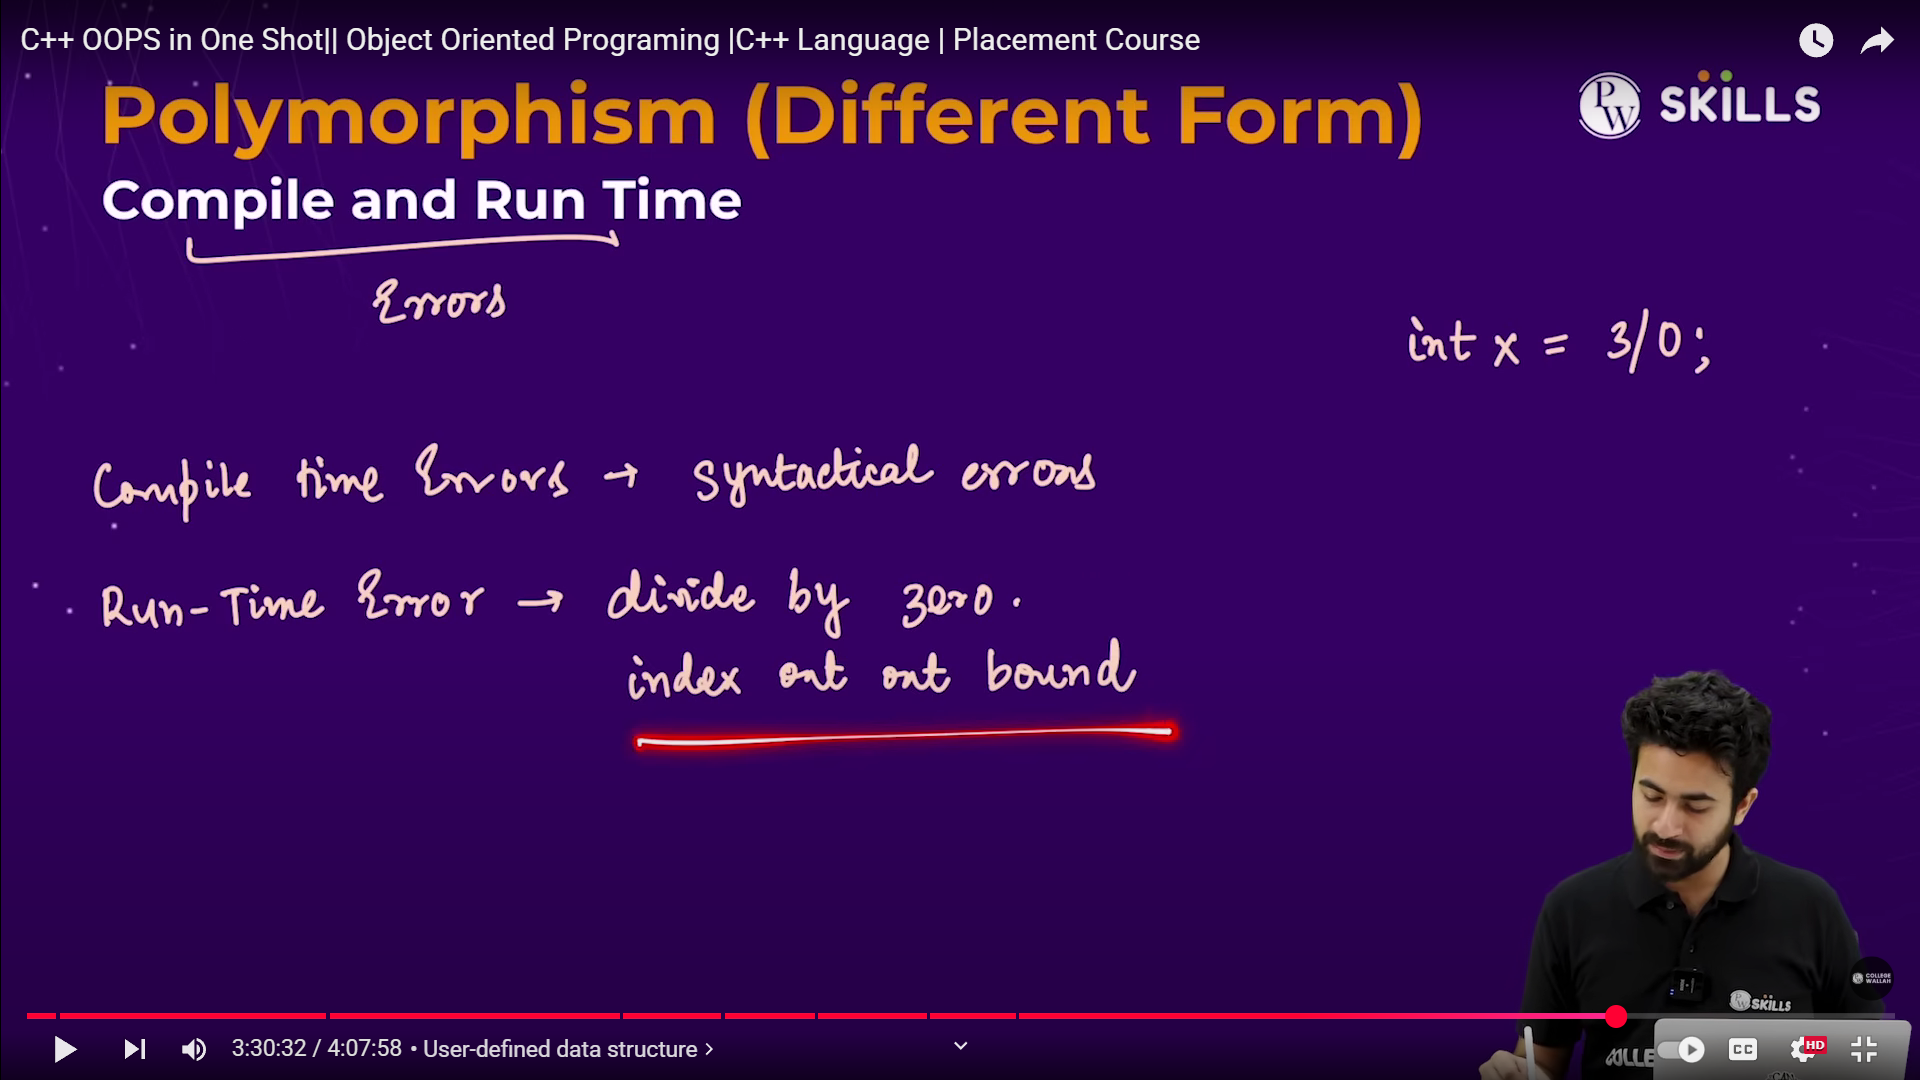 C++ OOPS in One Shot|| Object Oriented Programing |C++ Language | Placement Course
Polymorphism (Different Form)
PW SKILLS
Compile and Run Time
Errors
int x = 3/0;
Compile time Errors → syntactical errors
Run-Time Error → divide by zero.
index out out bound
COLLEGE
WALLAH
SKILLS
3:30:32 / 4:07:58 • User-defined data structure >
CC
HD